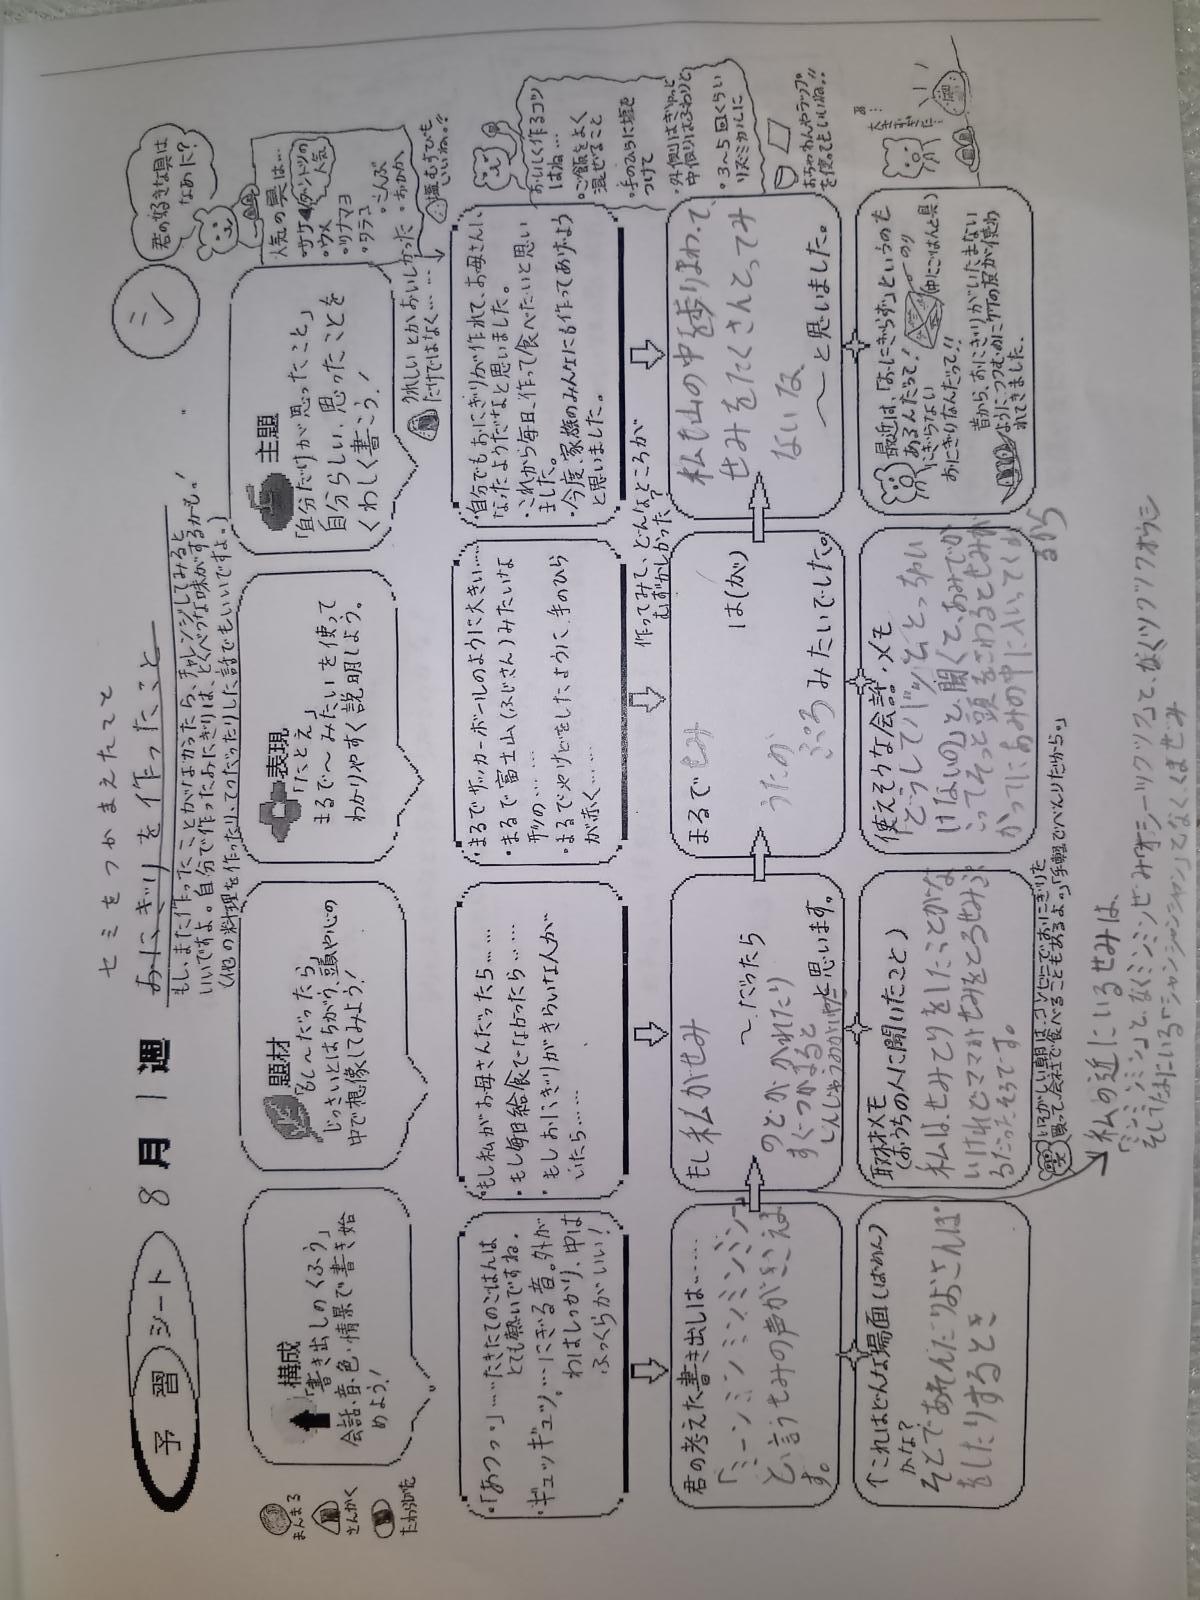 予習シート 8月1週
セミをつかまえたこと
おにぎりを作ったこと
もし、まだ作ったことがなかったら、チャレンジしてみると
いいですよ。自分で作ったおにぎりは、とくべつな味がするかも!
(他の料理を作ったり、てつだったりした話でもいいですよ。)
シ
君の好きな具は
なあに?
まんまる
さんかく
たわらがた
構成
「書き出しのくふう」
会話、音、色、情景で書き始
めよう!
題材
「もし〜だったら」
じっさいとはちがう、頭や心の
中で想像してみよう!
表現
「たとえ」
まるで〜みたい、を使って
わかりやすく説明しよう。
主題
「自分だけが思ったこと」
自分らしい、思ったことを
くわしく書こう!
うれしいとかおいしかった
だけではなく……
人気の具は…
・サケ
ダントツの
人気
・ウメ
・ツナマヨ
・タラコ
・こんぶ
・おかか
塩むすびも
いいね。!!
・「あつっ」……たきたてのごはんは
とても熱いですね。
ギュッギュッ。…にぎる音。外が
わはしっかり、中は
ふっくらがいい!
・もし私がお母さんだったら……
・もし毎日給食でなかったら……
・もしおにぎりがきらいな人が
いたら……
・まるでサッカーボールのように大きい……
・まるで富士山(ふじさん)みたいな
形の……
・まるでやけどをしたように、手のひら
が赤く……
・自分でもおにぎりが作れて、お母さんに
なったようだなと思いました。
・これから毎日、作って食べたいと思い
ました。
・今度、家族のみんなにも作ってあげよう
と思いました。
おいしく作るコツ
はね…
・ご飯をよく
混ぜること
・手のひらに塩を
つけて
・外側はぎゅっと
中側はふわりと
・3〜5回くらい
リズミカルに
おちゃわんやラップ
を使ってもいいね!!
作ってみて、どんなところが
むずかしかった?
君の考えた書き出しは……
「ミーンミンミンミンミン」
と言うせみの声がきこえま
す。
もし私がせみ
〜だったら
のどがかれたり
すぐつかまると
と思います。
まるでせみ
は(が)
うたの
みたいでした。
私も山の中を歩りまわって、
せみをたくさんとってみ
たいな
〜と思いました。
↑これはどんな場面(ばめん)
かな?
そとであそんだりおさんぽ
をしたりするとき
取材メモ
(おうちの人に聞いたこと)
私は、せみとりをしたことがな
いけれどママがせみをとるせみぶ
るだったそうです。
使えそうな会話・メモ
最近は、「おにぎらず」というのも
あるんだって!
のり
(中にごはんと具)
にぎらない
おにぎりなんだって!!
昔から、おにぎりがいたまない
ようにつつむのに竹の皮が使わ
れてきました。
いそがしい朝は、コンビニでおにぎりを
買って会社で食べることもあるよ。」「手軽でべんりだから。」
私の近にいるせみは、